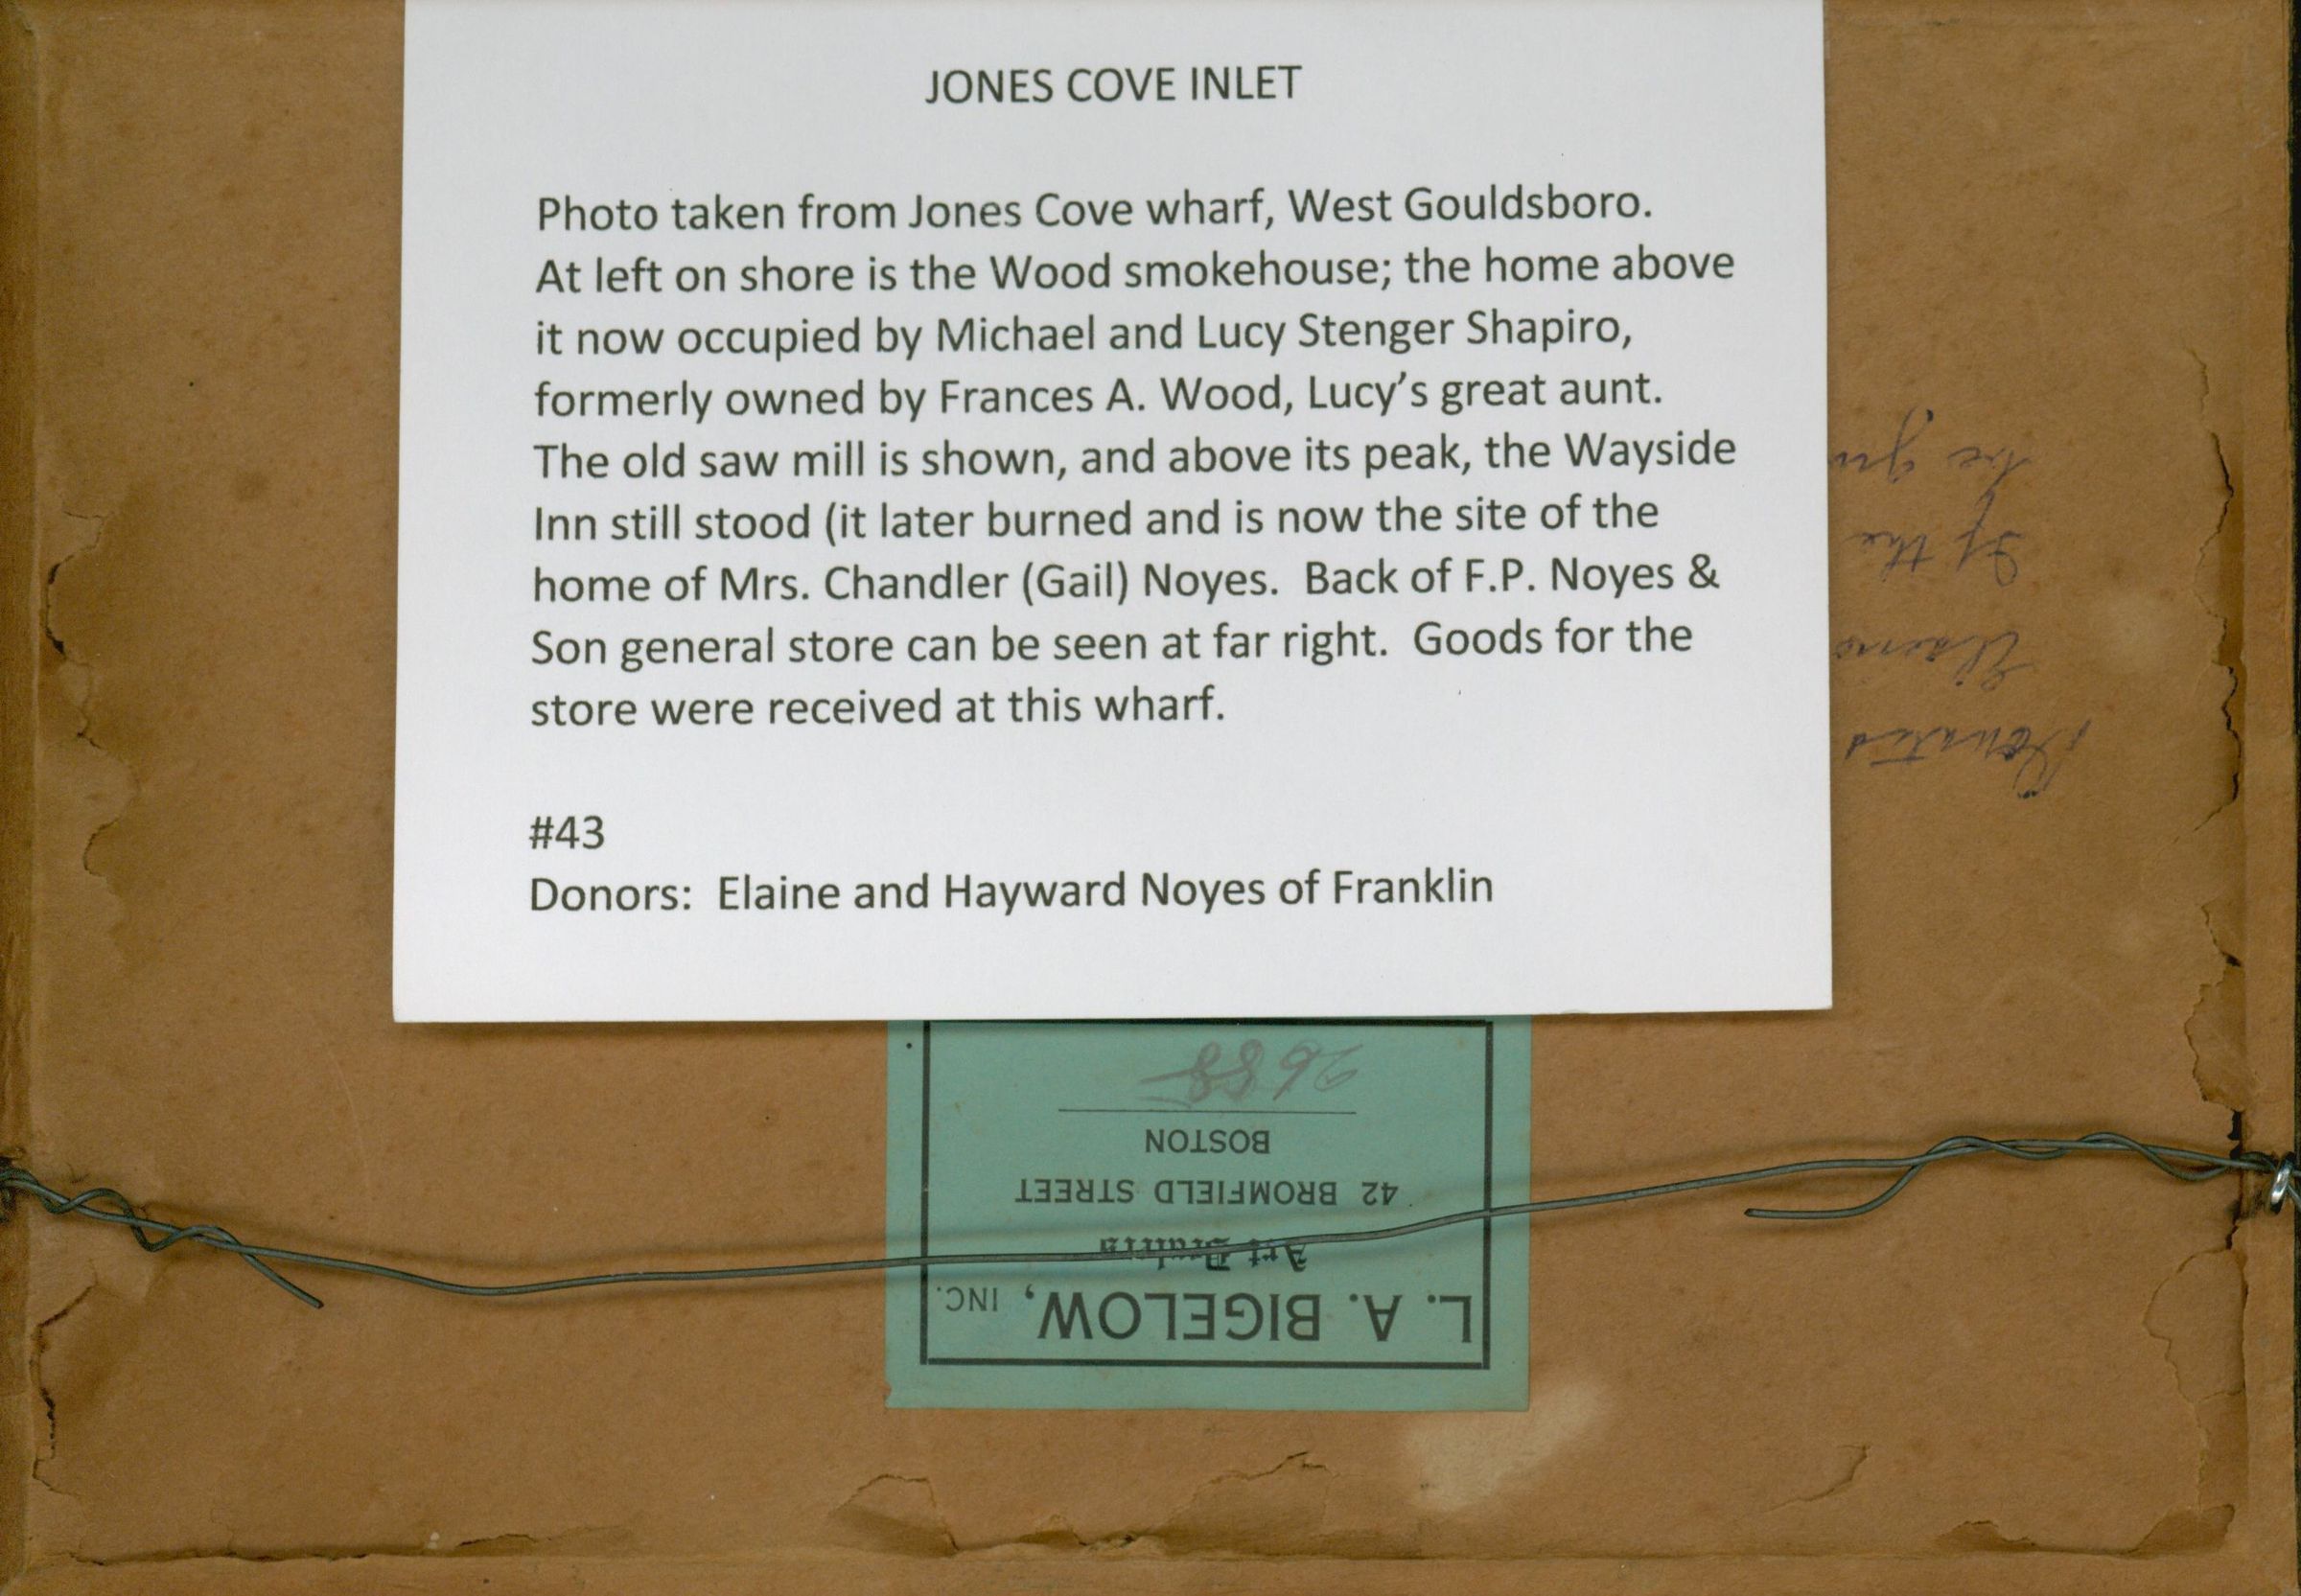 JONES COVE INLET
Photo taken from Jones Cove wharf, West Gouldsboro.
At left on shore is the Wood smokehouse; the home above
it now occupied by Michael and Lucy Stenger Shapiro,
formerly owned by Frances A. Wood, Lucy’s great aunt.
The old saw mill is shown, and above its peak, the Wayside
Inn still stood (it later burned and is now the site of the
home of Mrs. Chandler (Gail) Noyes.  Back of F.P. Noyes &
Son general store can be seen at far right.  Goods for the
store were received at this wharf.
#43
Donors:  Elaine and Hayward Noyes of Franklin
L. A. BIGELOW, INC.
Art Dealers
42 BROMFIELD STREET
BOSTON
2688
Donated
Elaine
If the